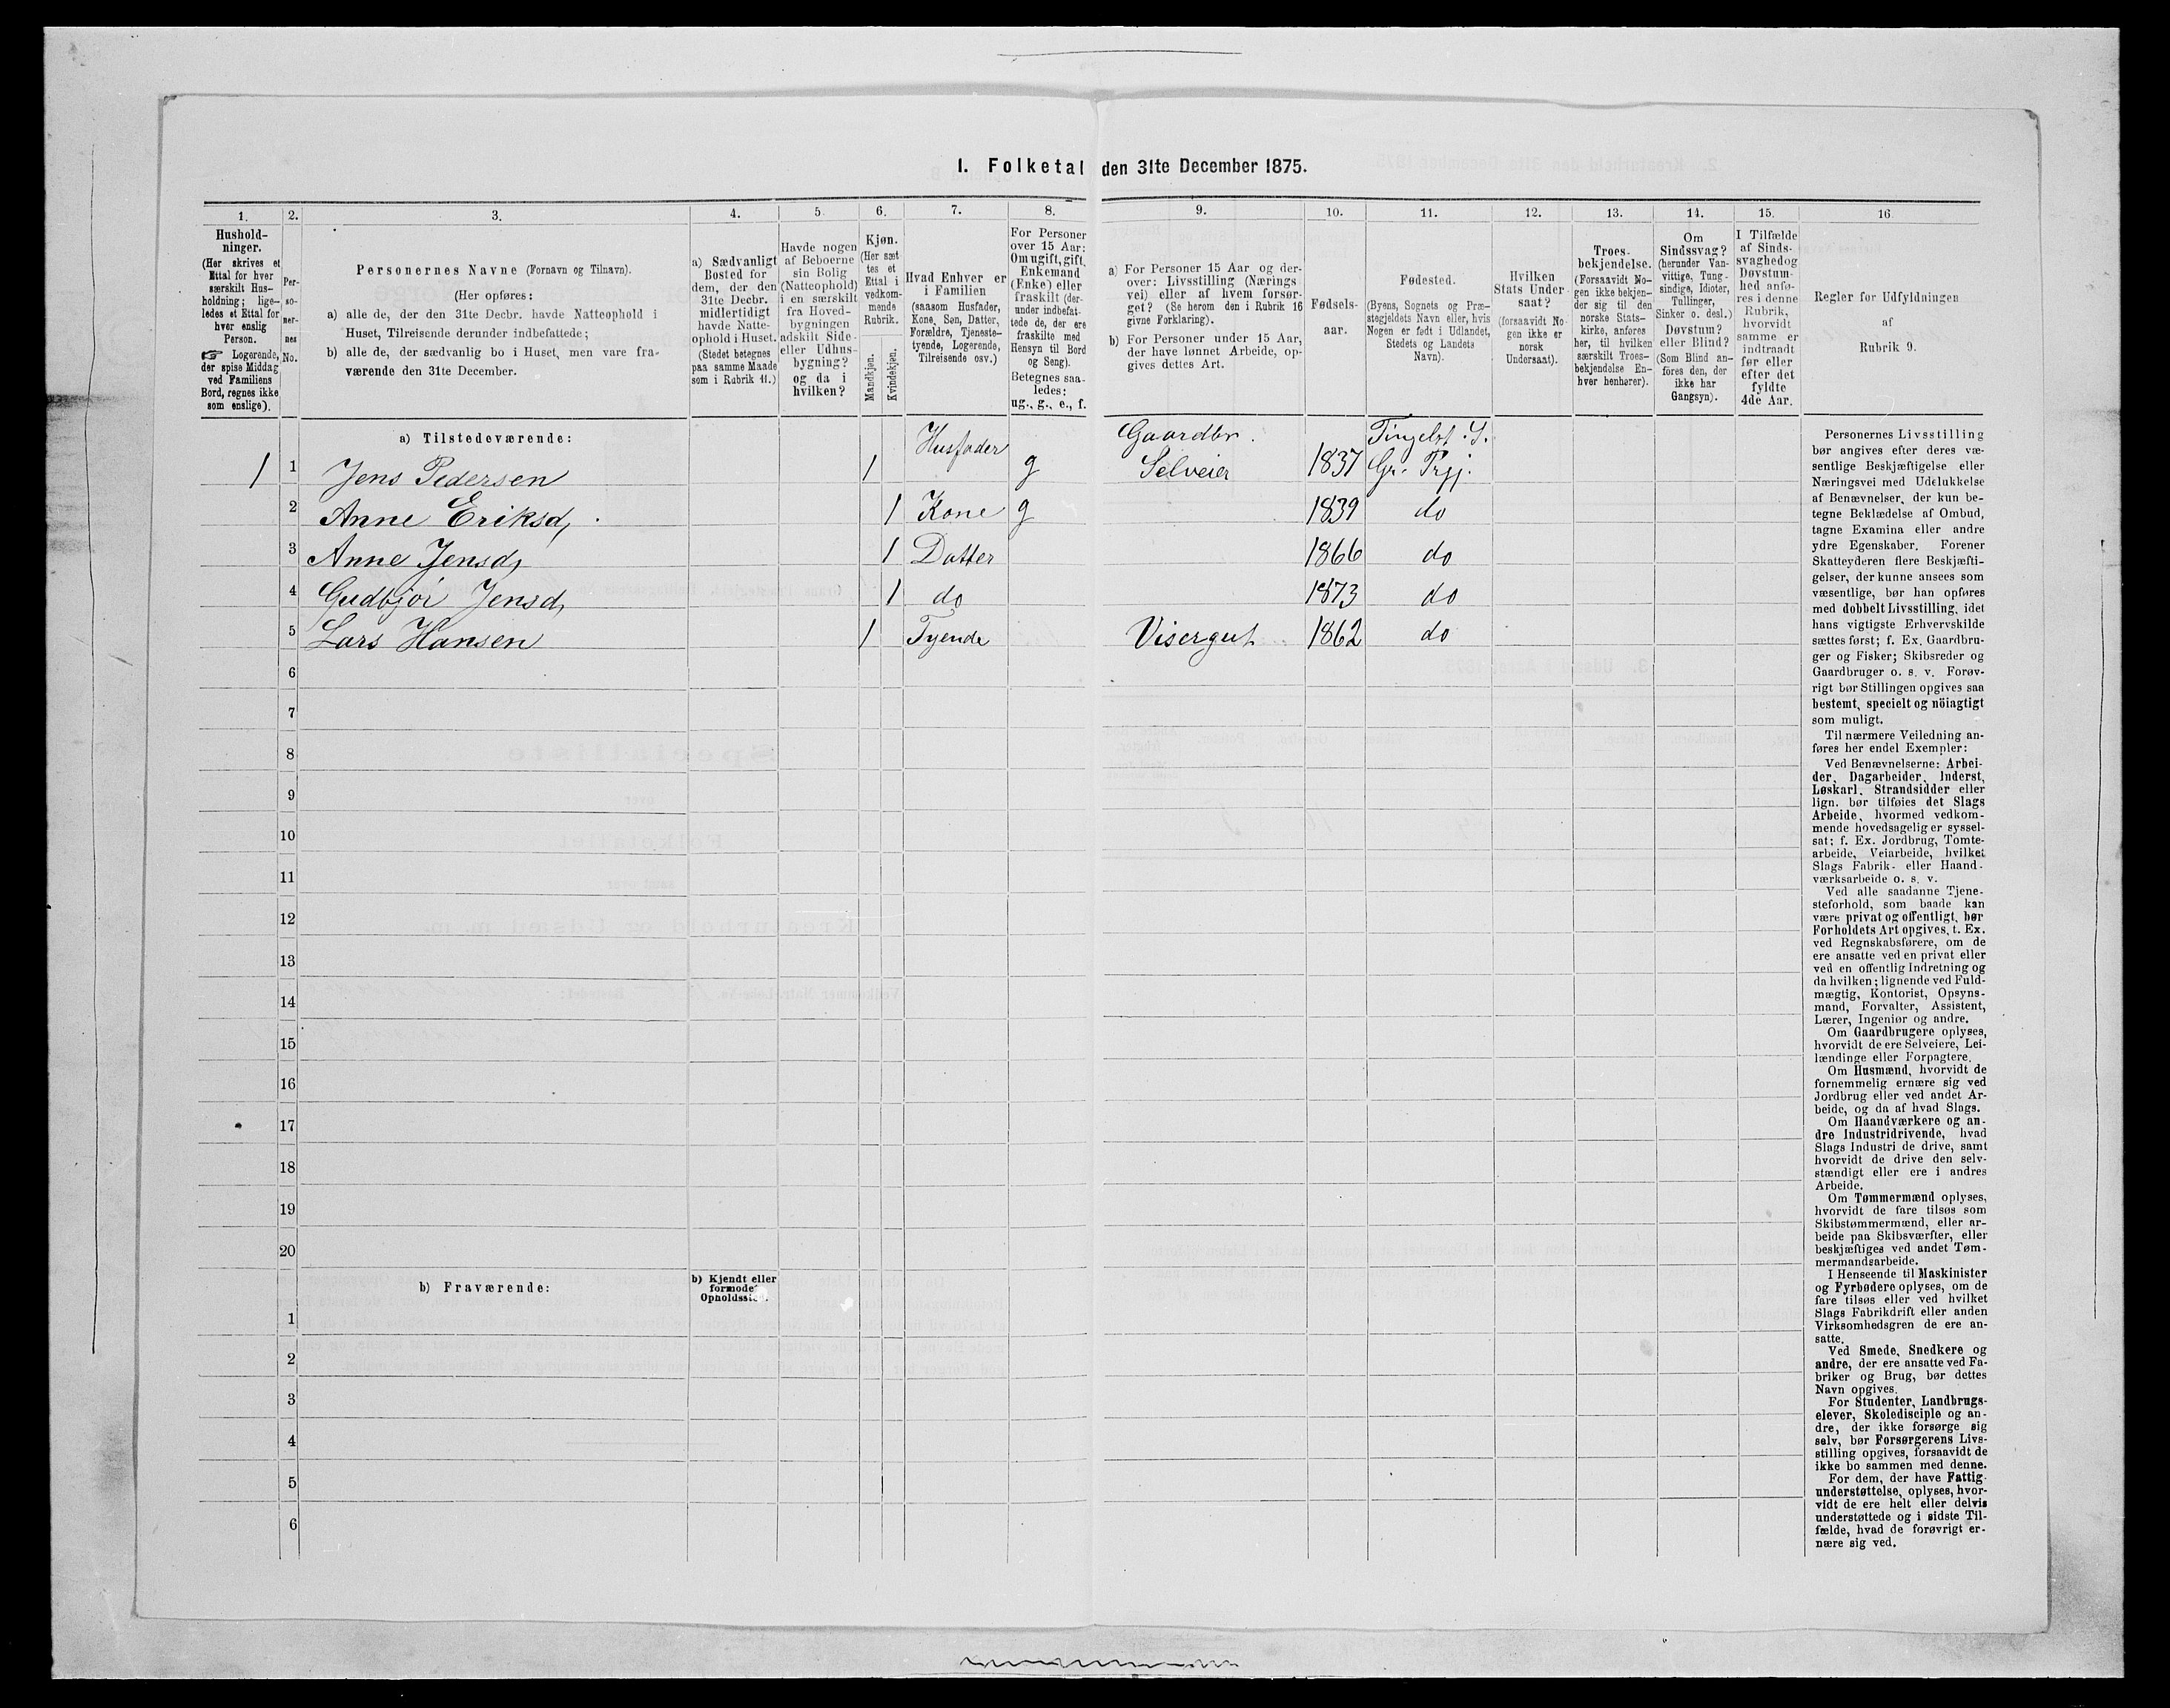 I. Folketal den 31te December 1875.
1.
Hushold-
ninger.
(Her skrives et
Ettal for hver
særskilt Hus-
holdning; lige-
ledes et Ettal for
hver enslig
Person.
☞ Logerende,
der spise Middag
ved Familiens
Bord, regnes ikke
som enslige).
2.
Per-
so-
ner-
nes
No.
3.
Personernes Navne (Fornavn og Tilnavn).
(Her opføres:
a) alle de, der den 31te Decbr. havde Natteophold i
Huset, Tilreisende derunder indbefattede;
b) alle de, der sædvanlig bo i Huset, men vare fra-
værende den 31te December.
4.
a) Sædvanligt
Bosted for
dem, der den
31te Decbr.
midlertidigt
havde Natte-
ophold i Huset.
(Stedet betegnes
paa samme Maade
som i Rubrik 11.)
5
Havde nogen
af Beboerne
sin Bolig
(Natteophold)
i en særskilt
fra Hoved-
bygningen
adskilt Side-
eller Udhus-
bygning?
og da i
hvilken?
6.
Kjøn.
(Her sæt
tes et
Ettal i
vedkom-
mende
Rubrik.
Mandkjøn.
Kvindekjøn.
7.
Hvad Enhver er
i Familien
(saasom Husfader,
Kone, Søn, Datter,
Forældre, Tjeneste-
tyende, Logerende,
Tilreisende osv.)
8.
For Personer
over 15 Aar:
Om ugift, gift,
Enkemand
(Enke) eller
fraskilt (der-
under indbefat-
tede de, der ere
fraskilte med
Hensyn til Bord
og Seng).
Betegnes saa-
ledes:
ug., g., e., f.
9.
a) For Personer 15 Aar og der-
over: Livsstilling (Nærings
vei) eller af hvem forsør-
get? (Se herom den i Rubrik 16
givne Forklaring).
b) For Personer under 15 Aar,
der have lønnet Arbeide, op-
gives dettes Art.
10.
Fødsels-
aar.
11.
Fødested.
(Byens, Sognets og Præ-
stegjeldets Navn eller, hvis
Nogen er født i Udlandet,
Stedets og Landets
Navn).
12.
Hvilken
Stats Under
saat?
(forsaavidt No-
gen ikke er
norsk
Undersaat).
13.
Troes-
bekjendelse.
(Forsaavidt No-
gen ikke bekjen-
der sig til den
norske Stats-
kirke, anføres
her, til hvilken
særskilt Troes-
bekjendelse En-
hver henhører).
14.
Om
Sindssvag?
(herunder Van-
vittige, Tung-
sindige, Idioter,
Tullinger,
Sinker o. desl.)
Døvstum?
eller Blind?
(Som Blind an-
føres den, der
ikke har
Gangsyn).
15.
I Tilfælde
af Sinds-
svaghed og
Døvstum-
hed anfø-
res i denne
Rubrik,
hvorvidt
samme er
indtraadt
før eller
efter det
fyldte
4de Aar.
16
Regler for Udfyldningen
af
Rubrik 9.
a) Tilstedeværende:
1 1 Jens Pedersen 1 Husfader g Gaardbr. Selveier 1837 Tingelst. S. Gr. Prgj.
2 Anne Eriksd, 1 Kone g 1839 do
3 Anne Jensd, 1 Datter 1866 do
4 Gudbjør Jensd, 1 do 1873 do
5 Lars Hansen 1 Tyende Visergut 1862 do
6
7
8
9
10
11
12
13
14
15
16
17
18
19
20
b) Fraværende:
b) Kjendt eller
formodet
Opholdssted.
1
2
3
4
5
6
Personernes Livsstilling
bør angives efter deres væ-
sentlige Beskjæftigelse eller
Næringsvei med Udelukkelse
af Benævnelser, der kun be-
tegne Beklædelse af Ombud,
tagne Examina eller andre
ydre Egenskaber. Forener
Skatteyderen flere Beskjæfti-
gelser, der kunne ansees som
væsentlige, bør han opføres
med dobbelt Livsstilling, idet
hans vigtigste Erhvervskilde
sættes først; f. Ex. Gaardbru-
ger og Fisker; Skibsreder og
Gaardbruger o. s. v. Forøv-
rigt bør Stillingen opgives saa
bestemt, specielt og nöiagtigt
som muligt.
Til nærmere Veiledning an-
føres her endel Exempler:
Ved Benævnelserne: Arbei-
der, Dagarbeider, Inderst,
Løskarl, Strandsidder eller
lign. bør tilføies det Slags
Arbeide, hvormed vedkom-
mende hovedsagelig er syssel-
sat; f. Ex. Jordbrug, Tomte-
arbeide, Veiarbeide, hvilket
Slags Fabrik- eller Haand-
værksarbeide o. s. v.
Ved alle saadanne Tjene-
steforhold, som baade kan
være privat og offentligt, bør
Forholdets Art opgives, t. Ex.
ved Regnskabsførere, om de
ere ansatte ved en privat eller
ved en offentlig Indretning og
da hvilken; lignende ved Fuld-
mægtig, Kontorist, Opsyns-
mand, Forvalter, Assistent,
Lærer, Ingeniør og andre.
Om Gaardbrugere oplyses,
hvorvidt de ere Selveiere, Lei-
lændinge eller Forpagtere.
Om Husmænd, hvorvidt de
fornemmelig ernære sig ved
Jordbrug eller ved andet Ar-
beide, og da af hvad Slags.
Om Haandværkere og an-
dre Industridrivende, hvad
Slags Industri de drive, samt
hvorvidt de drive den selv-
stændigt eller ere i andres
Arbeide.
Om Tømmermænd oplyses,
hvorvidt de fare tilsøs som
Skibstømmermænd, eller ar-
beide paa Skibsværfter, eller
beskjæftiges ved andet Tøm-
mermandsarbeide.
I Henseende til Maskinister
og Fyrbødere oplyses, om de
fare tilsøs eller ved hvilket
Slags Fabrikdrift eller anden
Virksomhedsgren de ere an-
satte.
Ved Smede, Snedkere og
andre, der ere ansatte ved Fa-
briker og Brug, bør dettes
Navn opgives.
For Studenter, Landbrugs-
elever, Skoledisciple og an-
dre, der ikke forsørge sig
selv, bør Forsørgerens Livs-
stilling opgives, forsaavidt de
ikke bo sammen med denne.
For dem, der have Fattig-
understøttelse, oplyses, hvor-
vidt de ere helt eller delvis
understøttede og i sidste Til-
fælde, hvad de forøvrigt er-
nære sig ved.